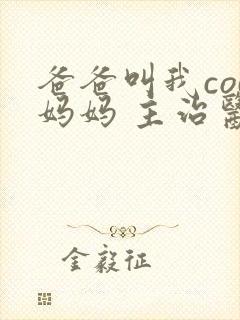 爸爸叫我co
妈妈 主治醫
金毅征